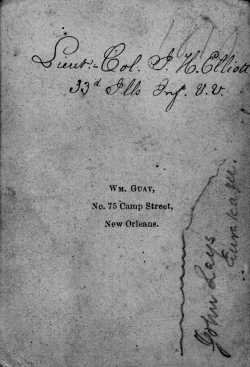 Lieut.-Col. I. H. Elliott
33d Ills Inf. V. V.
Wm. Guay,
No. 75 Camp Street,
New Orleans.
John Lays
Eureka